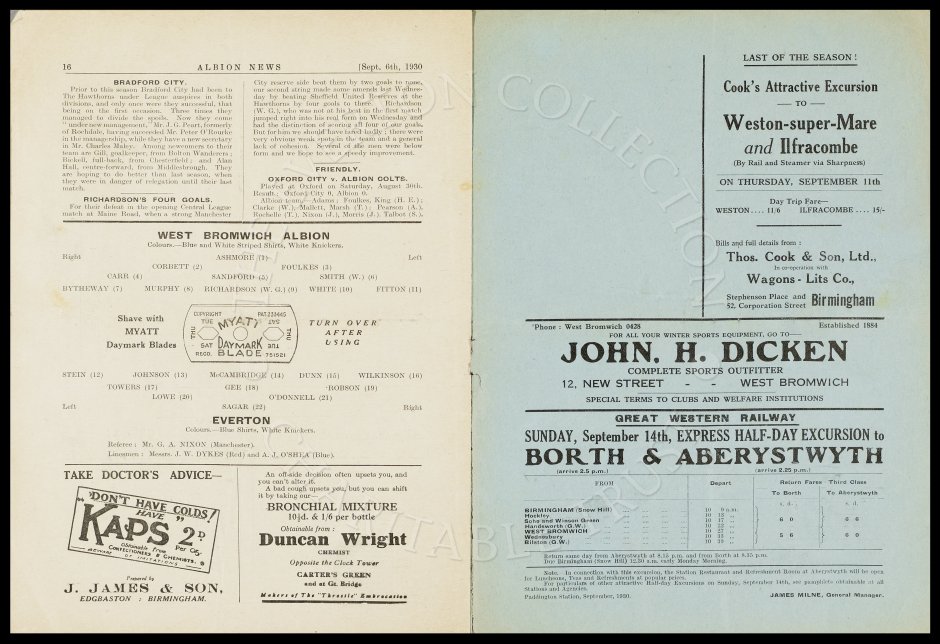 16 ALBION NEWS [Sept. 6th, 1930
BRADFORD CITY.
Prior to this season Bradford City had been to
The Hawthorns under League auspices in both
divisions, and only once were they successful, that
being on the first occasion. Three times they
managed to divide the spoils. Now they come
"under new management," Mr. J. G. Peart, formerly
of Rochdale, having succeeded Mr. Peter O'Rourke
in the managership, while they have a new secretary
in Mr. Charles Maley. Among newcomers to their
team are Gill, goalkeeper, from Bolton Wanderers;
Bickell, full-back, from Chesterfield; and Alan
Hall, centre-forward, from Middlesbrough. They
are hoping to do better than last season, when
they were in danger of relegation until their last
match.
RICHARDSON'S FOUR GOALS.
For their defeat in the opening Central League
match at Maine Road, when a strong Manchester
City reserve side beat them by two goals to none,
our second string made some amends last Wednes-
day by beating Sheffield United Reserves at the
Hawthorns by four goals to three. Richardson
(W. G.), who was not at his best in the first match
jumped right into his real form on Wednesday and
had the distinction of scoring all four of our goals.
But for him we should have fared badly; there were
very obvious weak spots in the team and a general
lack of cohesion. Several of the men were below
form and we hope to see a speedy improvement.
FRIENDLY.
OXFORD CITY v. ALBION COLTS.
Played at Oxford on Saturday, August 30th.
Result: Oxford City 6, Albion 0.
Albion team: Adams; Foulkes, King (H. E.);
Clarke (W.), Mallett, Marsh (T.); Pearson (A.),
Rochelle (T.), Nixon (J.), Morris (J.), Talbot (S.).
WEST BROMWICH ALBION
Colours.—Blue and White Striped Shirts, White Knickers.
Right ASHMORE (1) Left
CORBETT (2) FOULKES (3)
CARR (4) SANDFORD (5) SMITH (W.) (6)
BYTHEWAY (7) MURPHY (8) RICHARDSON (W. G.) (9) WHITE (10) FITTON (11)
Shave with
MYATT
Daymark Blades
COPYRIGHT PAT. 233445
TUE SAT
MYATT
THU THU
DAYMARK
SAT TUE
REGD. BLADE 751521
TURN OVER
AFTER
USING
STEIN (12) JOHNSON (13) McCAMBRIDGE (14) DUNN (15) WILKINSON (16)
TOWERS (17) GEE (18) ROBSON (19)
LOWE (20) O'DONNELL (21)
Left SAGAR (22) Right
EVERTON
Colours.—Blue Shirts, White Knickers.
Referee: Mr. G. A. NIXON (Manchester).
Linesmen: Messrs. J. W. DYKES (Red) and A. J. O'SHEA (Blue).
TAKE DOCTOR'S ADVICE—
"DON'T HAVE COLDS!
HAVE"
KAPS 2D
Per Oz.
Obtainable from
CONFECTIONERS & CHEMISTS
BEWARE OF IMITATIONS
Prepared by
J. JAMES & SON,
EDGBASTON : BIRMINGHAM.
An off-side decision often upsets you, and
you can't alter it.
A bad cough upsets you, but you can shift
it by taking our—
BRONCHIAL MIXTURE
10½d. & 1/6 per bottle
Obtainable from:
Duncan Wright
CHEMIST
Opposite the Clock Tower
CARTER'S GREEN
and at Gt. Bridge
Makers of The "Throstle" Embrocation
LAST OF THE SEASON!
Cook's Attractive Excursion
— TO —
Weston-super-Mare
and Ilfracombe
(By Rail and Steamer via Sharpness)
ON THURSDAY, SEPTEMBER 11th
Day Trip Fare—
WESTON.... 11/6 ILFRACOMBE .... 15/-
Bills and full details from:
Thos. Cook & Son, Ltd.,
In co-operation with
Wagons-Lits Co.,
Stephenson Place and
52, Corporation Street Birmingham
'Phone: West Bromwich 0428 Established 1884
FOR ALL YOUR WINTER SPORTS EQUIPMENT, GO TO—
JOHN. H. DICKEN
COMPLETE SPORTS OUTFITTER
12, NEW STREET - - WEST BROMWICH
SPECIAL TERMS TO CLUBS AND WELFARE INSTITUTIONS
GREAT WESTERN RAILWAY
SUNDAY, September 14th, EXPRESS HALF-DAY EXCURSION to
BORTH & ABERYSTWYTH
(arrive 2.5 p.m.) (arrive 2.25 p.m.)
FROM Depart Return Fares Third Class
To Borth To Aberystwyth
s. d. s. d.
BIRMINGHAM (Snow Hill) 10 9 a.m.
Hockley 10 13
Soho and Winson Green 10 17 6 0 6 6
Handsworth (G.W.) 10 22
WEST BROMWICH 10 27
Wednesbury 5 6 6 0
Bilston (G.W.)
Return same day from Aberystwyth at 8.15 p.m. and from Borth at 8.35 p.m.
Due Birmingham (Snow Hill) 12.30 a.m. early Monday Morning.
Note. In connection with this excursion, the Station Restaurant and Refreshment Room at Aberystwyth will be open
for Luncheons, Teas and Refreshments at popular prices.
For particulars of other attractive Half-day Excursions on Sunday, September 14th, see pamphlets obtainable at all
Stations and Agencies.
Paddington Station, September, 1930. JAMES MILNE, General Manager.